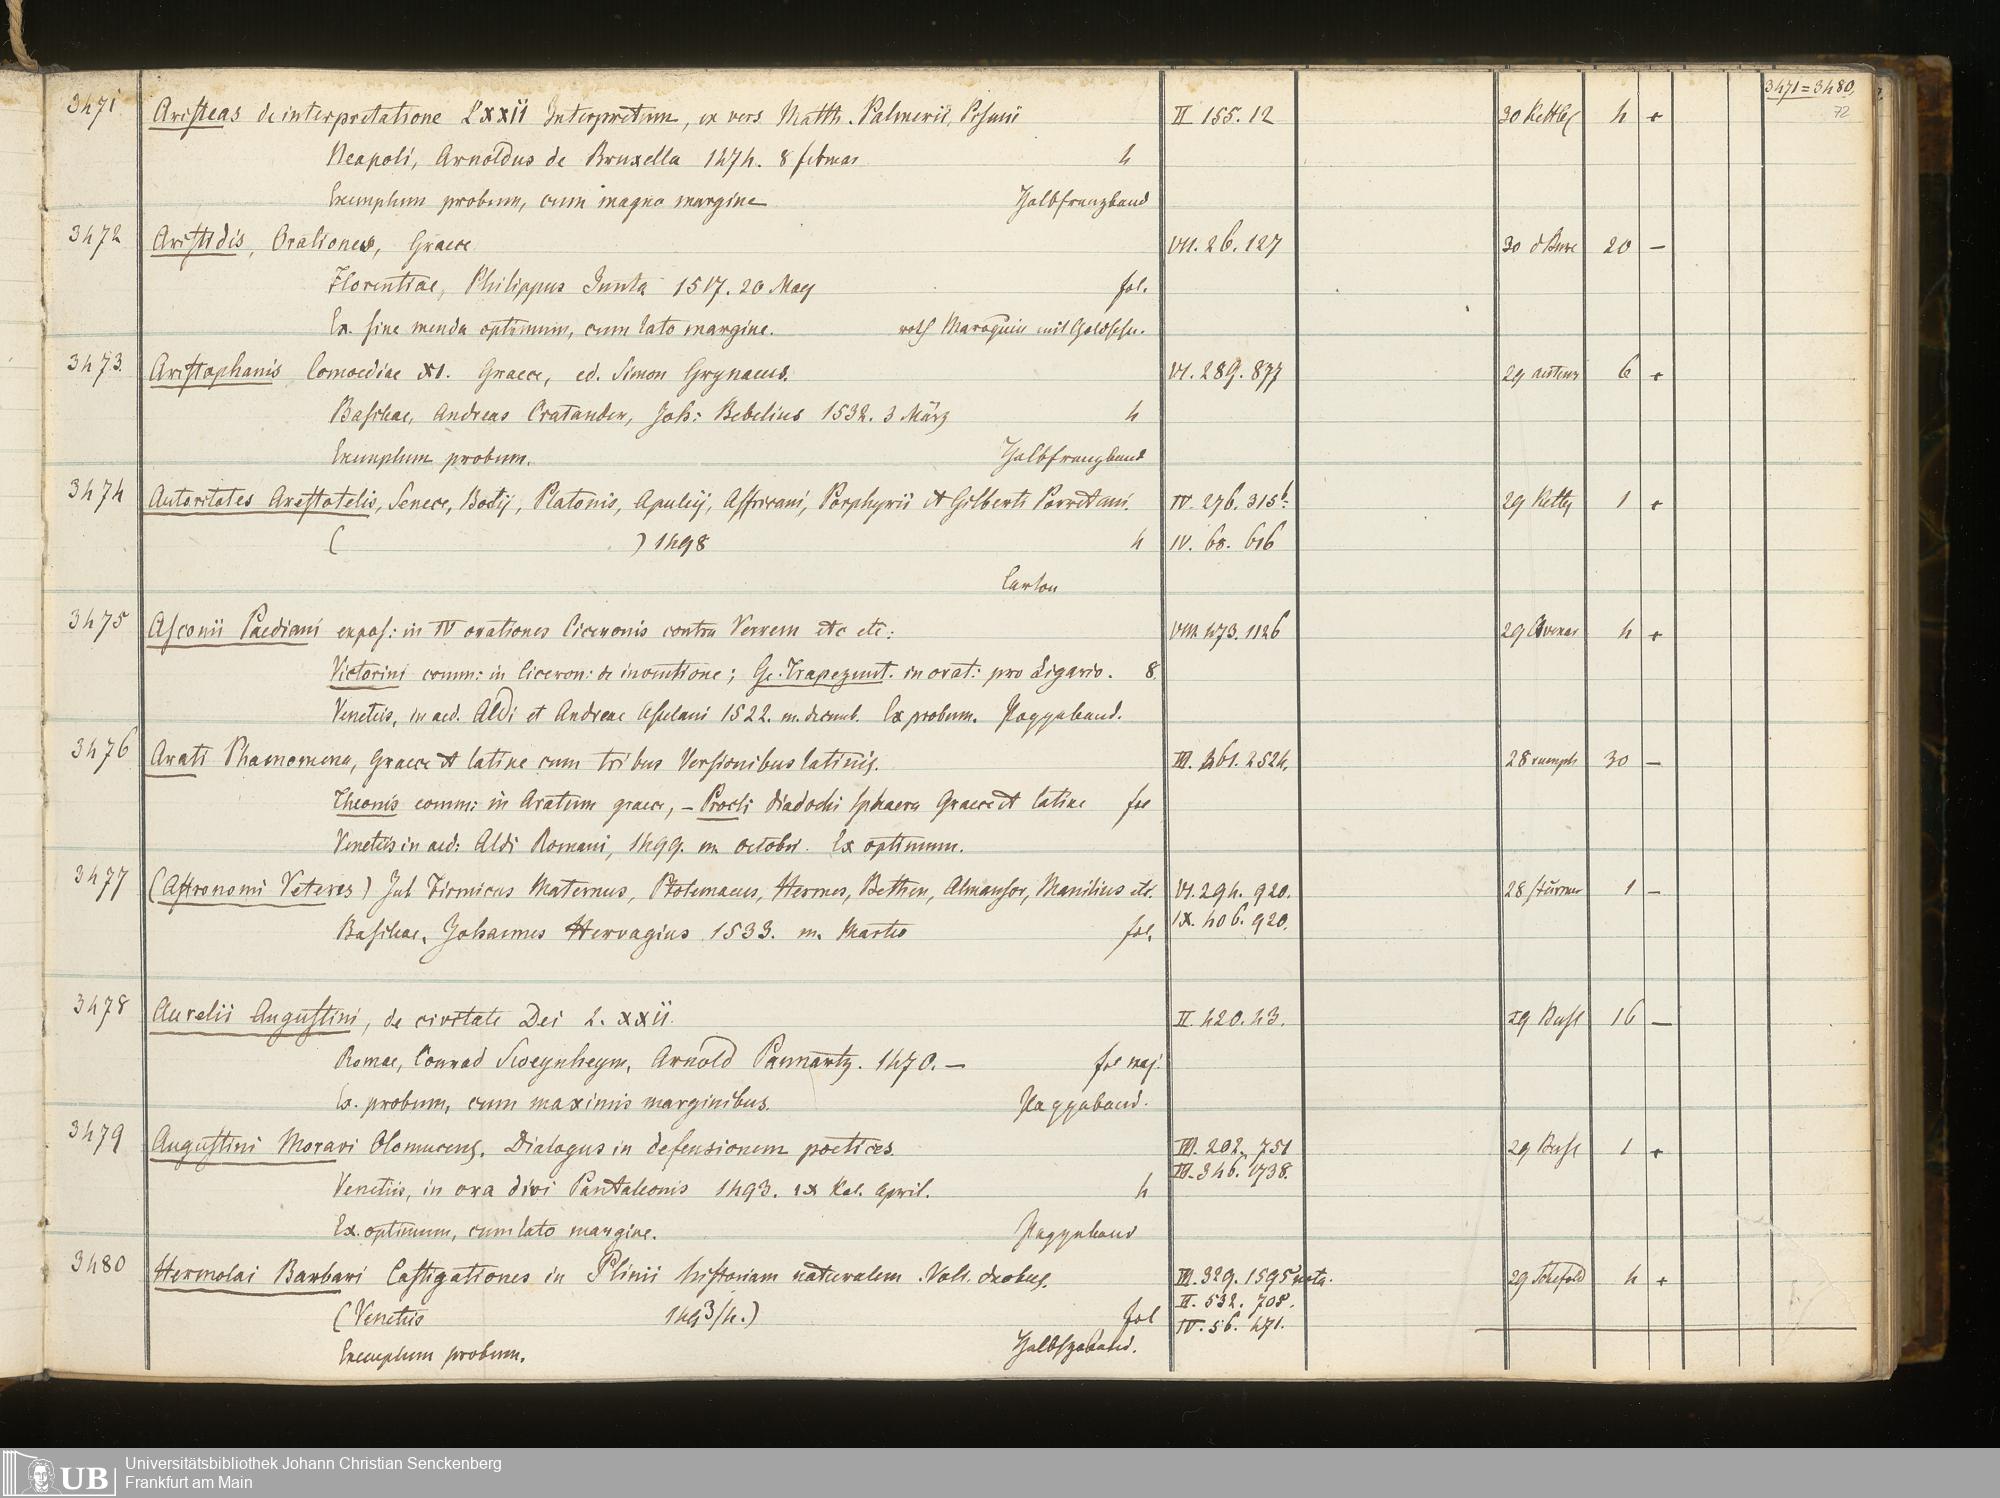 3471=3480.
72
3471 Aristeas de interpretatione LXXII Interpretum, ex vers Matth. Palmerii, Pisani II 155.12 30 Kettler 4 +
Neapoli, Arnoldus de Bruxella 1474. 8 februar 4
Exemplum probum, cum magno margine Halbfranzband
3472 Aristidis, Orationes, Graece VII. 26. 127 30 d Bure 20 —
Florentiae, Philippus Junta 1517. 20 May fol.
Ex. sine menda optimum, cum lato margine. roth Maroquin mit Goldschn.
3473. Aristophanis Comoediae XI. Graece, ed. Simon Grynaeus. VI. 289. 877 29 6 +
Basileae, Andreas Cratander, Joh: Bebelius 1532. 3 März 4
Exemplum probum. Halbfranzband
3474 Autoritates Arestotelis, Senece, Boetij, Platonis, Apuleij, Affricani, Porphyrii et Gilberti Porretani. IV. 276. 315b: 29 Kettlr 1 +
( ) 1498 4 IV. 68. 616
Carton
3475 Asconii Paediani expos: in IV orationes Ciceronis contra Verrem etc etc: VIII 473. 1126 29 4 +
Victorini comm: in Ciceron: de inventione; Ge. Trapezunt. in orat: pro Ligario. 8.
Venetiis, in aed. Aldi et Andreae Asulani 1522. m. decemb. Ex probum. Pappband.
3476 Arati Phaenomena, Graece et latine cum tribus Versionibus latinis. III. 461. 2524. 28 rumph 30 —
Theonis comm: in Aratum graece, – Procli diadochi sphaera Graece et latine fol
Venetiis in aed: Aldi Romani, 1499. m. octobr. Ex optimum.
3477 (Astronomi Veteres) Jul Firmicus Maternus, Ptolemaeus, Hermes, Bethen, Almansor, Manilius etc. VI. 294. 920. 28 stürmer 1 —
Basileae, Johannes Hervagius 1533. m. Martio fol. IX. 406. 920.
3478 Aurelii Augustini, de civitate Dei L. XXII. II. 420. 43. 29 Busl 16 —
Romae, Conrad Sweynheym, Arnold Pannartz. 1470. — fol maj.
Ex. probum, cum maximis marginibus. Pappband.
3479 Augustini Moravi Olomucens. Dialogus in defensionem poetices. III. 202. 751 29 Busl 1 +
Venetiis, in ora divi Pantaleonis 1493. IX Kal. April. 4 III. 346. 1738.
Ex. optimum, cum lato margine. Pappband
3480 Hermolai Barbari Castigationes in Plinii historiam naturalem. Voll. duobus. III. 329. 1595 nota. 29 Schefold 4 +
(Venetiis 1493/4.) fol II. 532. 708.
IV. 56. 471.
Exemplum probum. Halbfrzband.
UB
Universitätsbibliothek Johann Christian Senckenberg
Frankfurt am Main